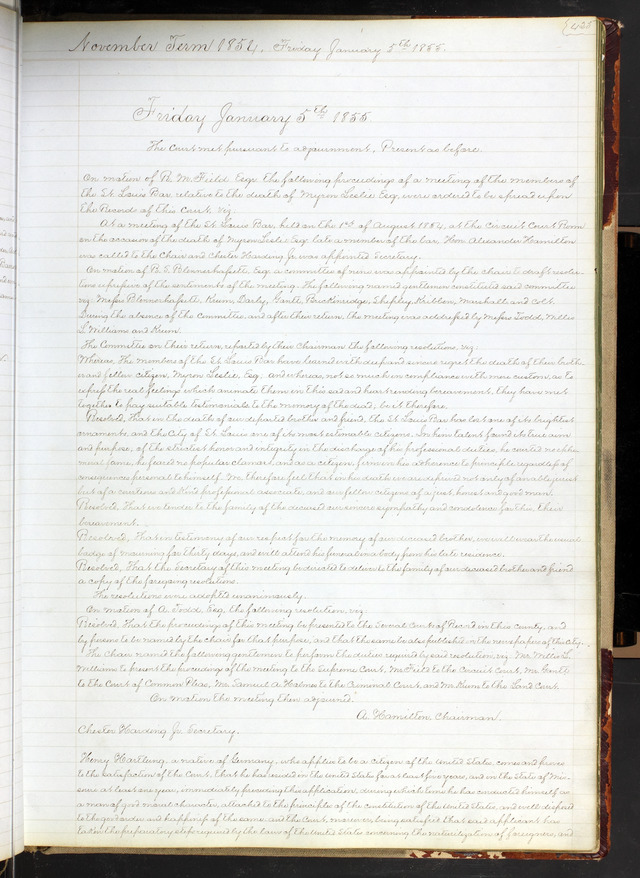 425
November Term 1854. Friday January 5th 1855.
Friday January 5th 1855
The Court met pursuant to adjournment, Present as before.
On motion of R. M. Field Esqr the following proceedings of a meeting of the members of
the St. Louis Bar relative to the death of Myron Leslie Esq. were ordered to be spread upon
the Records of this Court, viz.
At a meeting of the St. Louis Bar, held on the 1st of August 1854, at the Circuit Court Room
on the occasion of the death of Myron Leslie Esq. late a member of the bar, Hon. Alexander Hamilton
was called to the Chair and Chester Harding Jr. was appointed Secretary.
On motion of R. S. Blennerhassett, Esq. a committee of nine was appointed by the chair to draft resolu-
tions expressive of the sentiments of the meeting. The following named gentlemen constituted said committee
viz: Messrs Blennerhassett, Krum, Darby, Gantt, Breckinridge, Shepley, Kribben, Marshall and Colt.
During the absence of the committee, and after their return, the meeting was addressed by Messrs Todd, Willis
L. Williams and Krum.
The Committee on their return, reported by their Chairman the following resolutions, viz:
Whereas, The members of the St. Louis Bar have learned with deep and sincere regret the death of their brother
and fellow citizen, Myron Leslie, Esq. and whereas not so much in compliance with mere custom, as to
express the real feelings which animate them in this sad and heart rending bereavement, they have met
together to pay suitable testimonials to the memory of the dead, be it therefore,
Resolved, That in the death of our departed brother and friend, the St. Louis Bar has lost one of its brightest
ornaments, and the City of St. Louis one of its most estimable citizens. In him talent found its true aim
and purpose, of the strictest honor and integrity in the discharge of his professional duties, he courted no ephe-
meral fame, he feared no popular clamor, and as a citizen, firm in his adherence to principle regardless of
consequences personal to himself. We, therefore feel that in his death we are deprived not only of an able jurist
but of a courteous and kind professional associate, and as fellow citizens of a just, honest and good man.
Resolved, That we tender to the family of the deceased our sincere sympathy and condolence for this, their
bereavement.
Resolved, That in testimony of our respect for the memory of our deceased brother, we will wear the usual
badge of mourning for thirty days, and will attend his funeral in a body from his late residence.
Resolved, That the Secretary of this meeting be directed to deliver to the family of our deceased brother and friend
a copy of the foregoing resolutions.
The resolutions were adopted unanimously.
On motion of A. Todd, Esq. the following resolution, viz:
Resolved, That the proceedings of this meeting be presented to the several Courts of Record in this county, and
by persons to be named by the chair for that purpose, and that the same be also published in the newspapers of the City.
The Chair named the following gentlemen to perform the duties required by said resolution, viz: Mr. Willis L.
Williams to present the proceedings of the meeting to the Supreme Court, Mr. Field to the Circuit Court, Mr. Gantt
to the Court of Common Pleas, Mr. Samuel A. Holmes to the Criminal Court, and Mr. Krum to the Land Court.
On motion the meeting then adjourned.
A. Hamilton. Chairman.
Chester Harding Jr. Secretary.
Henry Hartling, a native of Germany, who applies to be a citizen of the United States, comes and proves
to the satisfaction of the Court, that he has resided in the United States for at least five years, and in the State of Mis-
souri at least one year, immediately preceding this application, during which time he has conducted himself as
a man of good moral character, attached to the principles of the constitution of the United States, and well disposed
to the good order and happiness of the same, and the Court, moreover, being satisfied that said applicant has
taken the preparatory steps required by the laws of the United States concerning the naturalization of foreigners, and